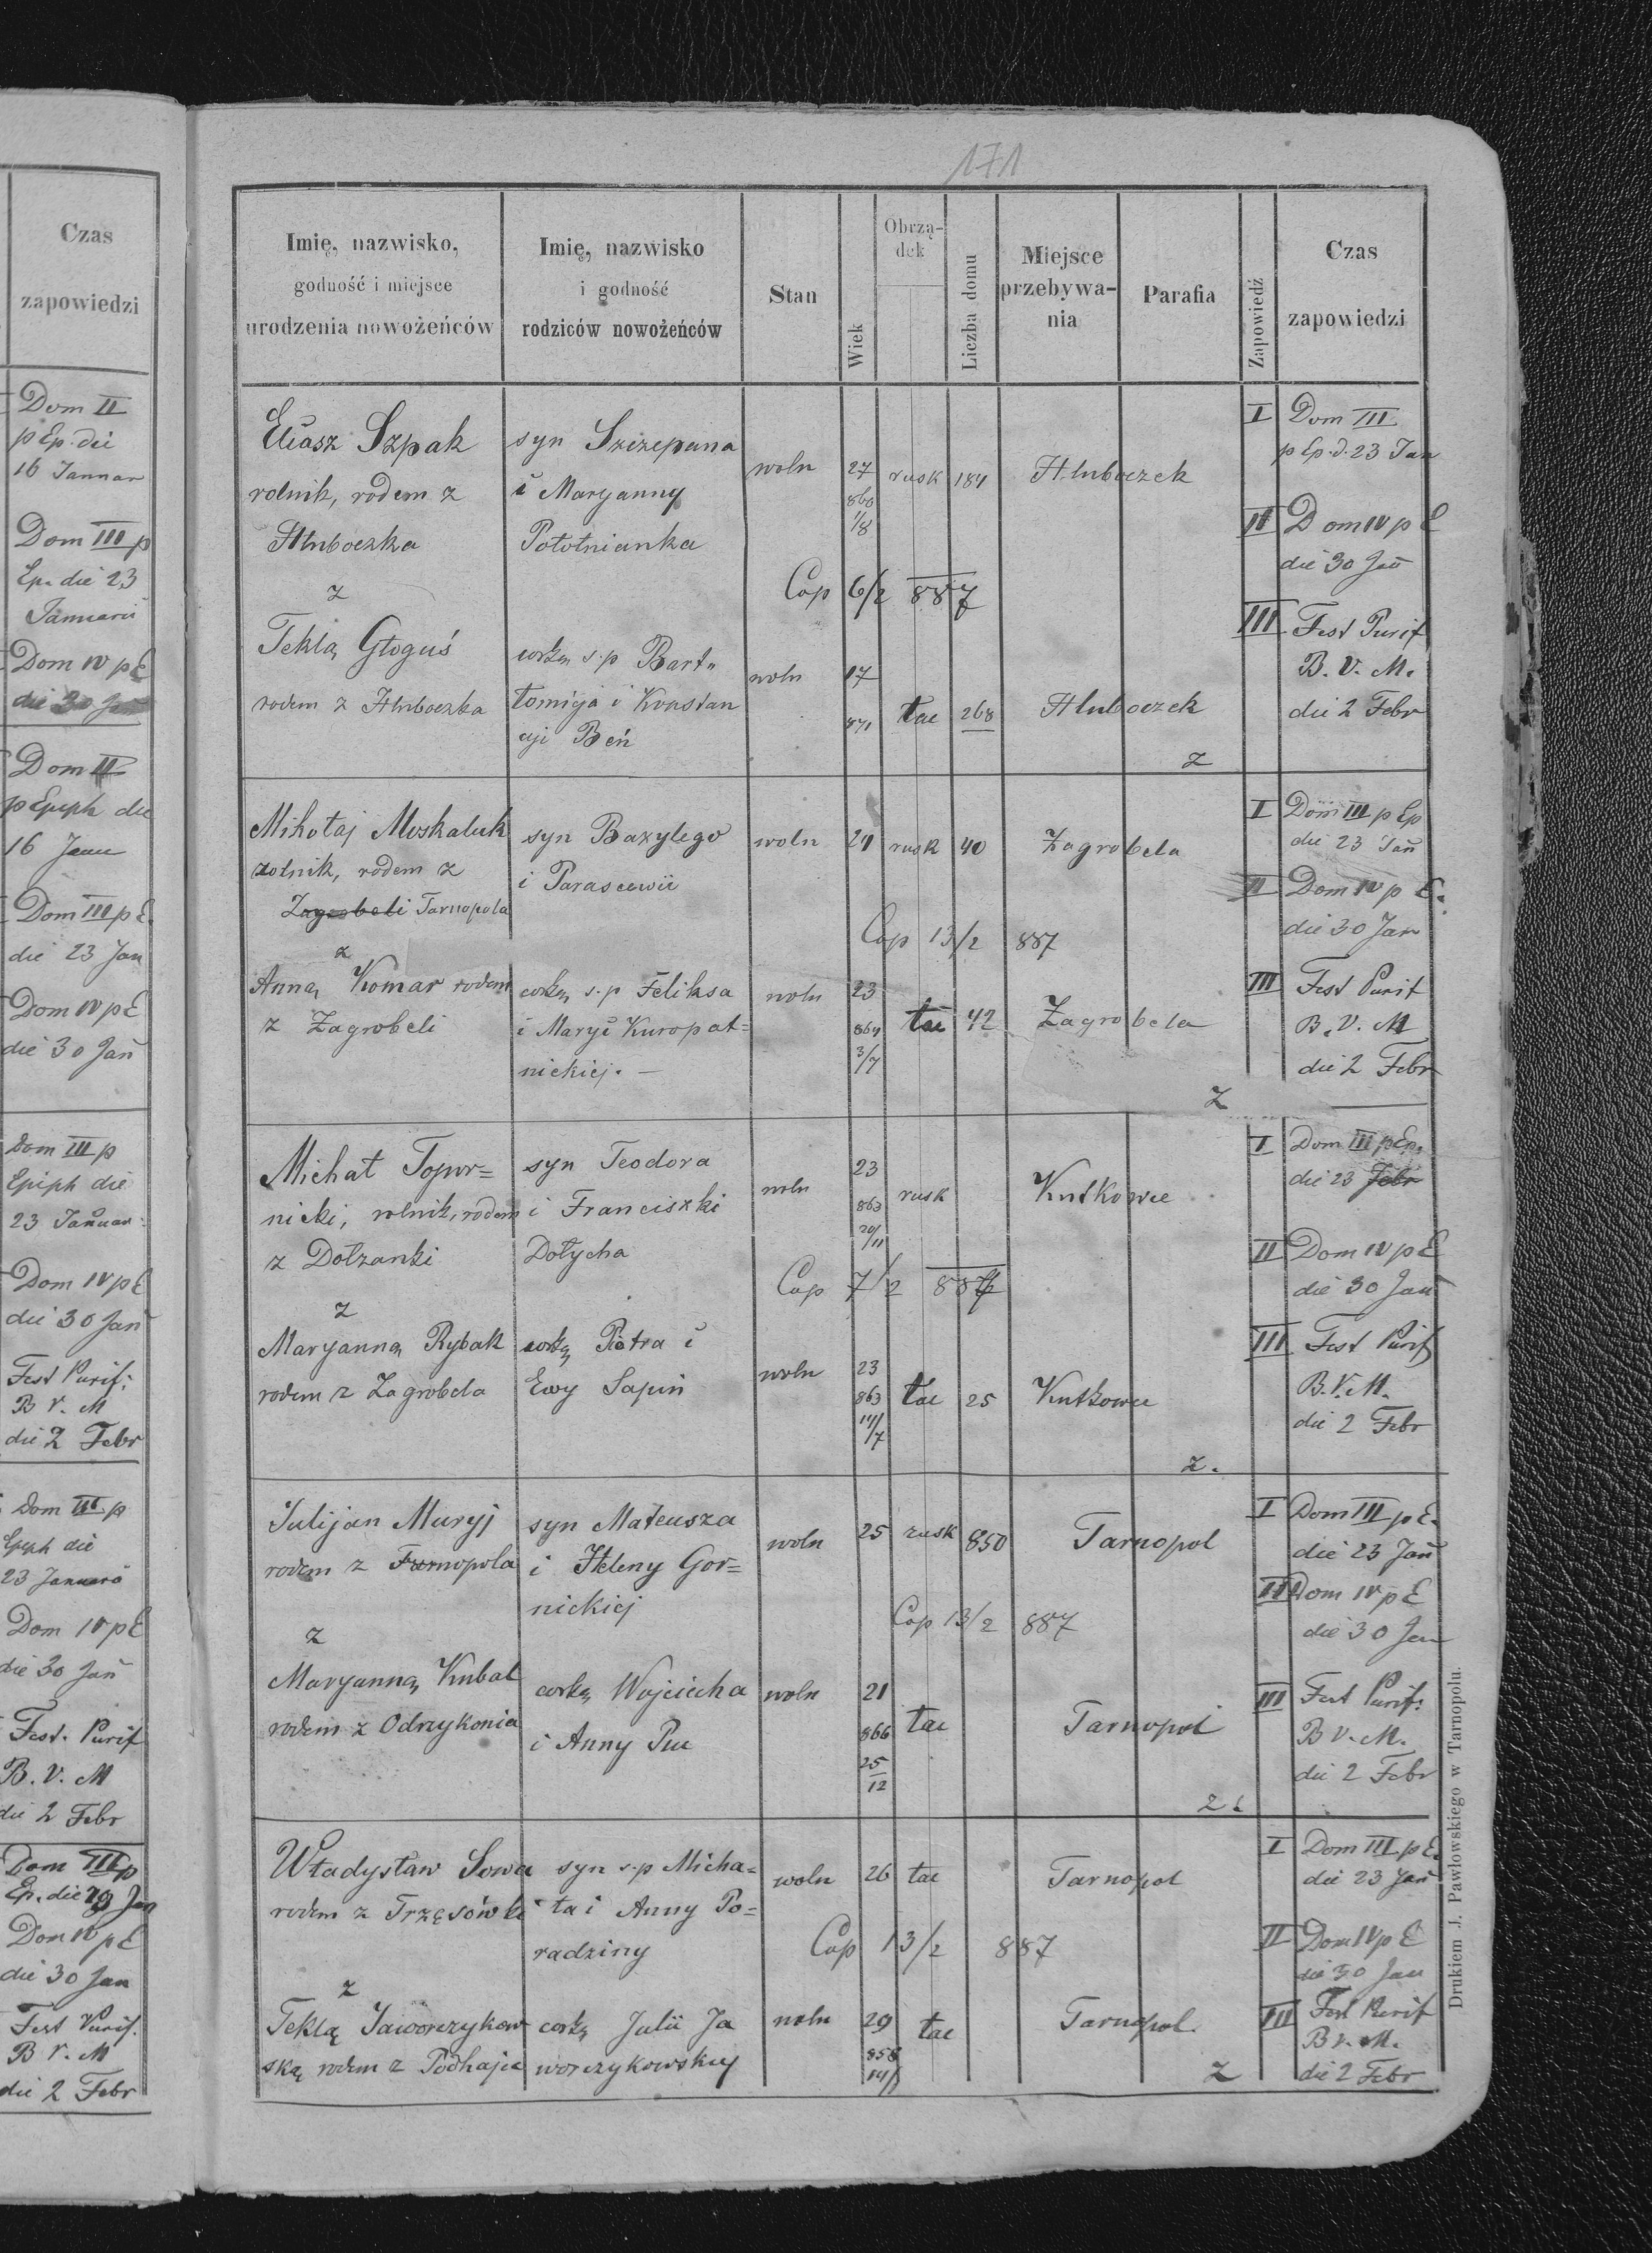 Czas
zapowiedzi
Dom II
p Ep. die
16 Januar
Dom III p
Ep. die 23
Januarii
Dom IV p E
die 30 Jan
Dom II
p Epiph die
16 Janu
Dom III p E.
die 23 Jan
Dom IV p E
die 30 Jan
Dom III p
Epiph die
23 Januar
Dom IV p E
die 30 Jan
Fest Purif:
B V. M
die 2 Febr
Dom III p
Epph die
23 Januarii
Dom IV p E
die 30 Jan
Fest. Purif
B. V. M
die 2 Febr
Dom III p
Ep. die Jan
Dom IV p E
die 30 Jan
Fest Purif.
B V. M
die 2 Febr
171
Imię, nazwisko,
godność i miejsce
urodzenia nowożeńców
Imię, nazwisko
i godność
rodziców nowożeńców
Stan
Wiek
Obrzą-
dek
Liczba domu
Miejsce
przebywa-
nia
Parafia
Zapowiedź
Czas
zapowiedzi
Eliasz Szpak
rolnik, rodem z
Hluboczka
z
Teklą Głoguś
rodem z Hluboczka
syn Szczepana
i Maryanny
Połotnianka
corką s.p Bart=
łomieja i Konstan
cyi Beń
woln 27 rusk 184 Hluboczek
860
1/8
Cop 6/2 887
woln 17
871 łac 268 Hluboczek
z
I Dom III
p Ep. d. 23 Jan
II Dom IV p E
die 30 Jan
III Fest Purif
B. V. M.
die 2 Febr
Mikołaj Moskaluk
rolnik, rodem z
Zagrobeli Tarnopola
z
Anną Komar rodem
z Zagrobeli
syn Bazylego
i Parascewii
corką s.p Feliksa
i Maryi Kuropat=
nickiej. —
woln 21 rusk 40 Zagrobela
Cop 13/2 887
woln 23
864 łac 42 Zagrobela
3/7
z
I Dom III p Ep
die 23 Jan
II Dom IV p E.
die 30 Jan
III Fest Purif
B. V. M
die 2 Febr
Michał Topor=
nicki, rolnik, rodem
z Dołżanki
z
Maryanną Rybak
rodem z Zagrobela
syn Teodora
i Franciszki
Dołycha
corką Piotra i
Ewy Sapiń
woln 23
863 rusk Kutkowce
20/11
Cop 7/2 887
woln 23
863 łac 25 Kutkowce
14/7
z.
I Dom III p Ep.
die 23 Febr
II Dom IV p E
die 30 Jan
III Fest Purif
B. V. M.
die 2 Febr
Julijan Muryj
rodem z Tarnopola
z
Maryanną Kubal
rodem z Odrzykonia
syn Mateusza
i Heleny Gor=
nickiej
corką Wojciecha
i Anny Puc
woln 25 rusk 850 Tarnopol
Cop 13/2 887
woln 21
866 łac Tarnopol
25
12
z.
I Dom III p E.
die 23 Jan
II Dom IV p E
die 30 Jan
III Fest Purif:
B V. M.
die 2 Febr
Władysław Sowa
rodem z Trzęsówki
z
Teklą Jaworzykow
ską rodem z Podhajec
syn s.p Micha=
ła i Anny Po=
radziny
corką Julii Ja
worzykowskiej
woln 26 łac Tarnopol
Cop 13/2 887
woln 29 łac Tarnopol
858
z
I Dom III p E.
die 23 Jan
II Dom IV p E
die 30 Jan
III Fest Purif
B V. M.
die 2 Febr
Drukiem J. Pawłowskiego w Tarnopolu.